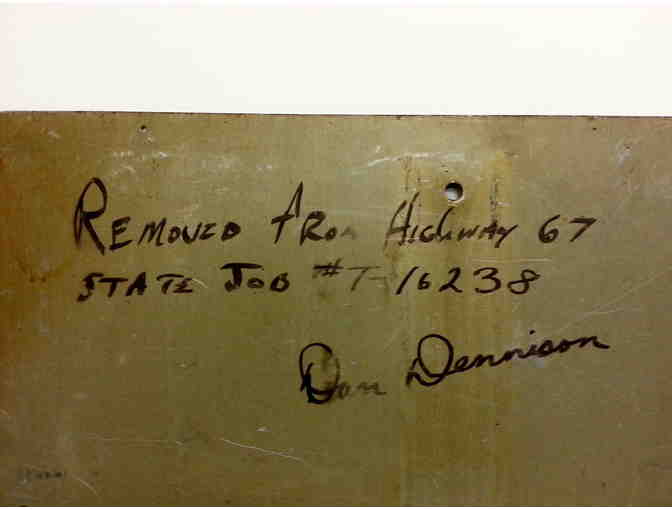 REMOVED FROM HIGHWAY 67
STATE JOB #T-16238
Dan Dennison